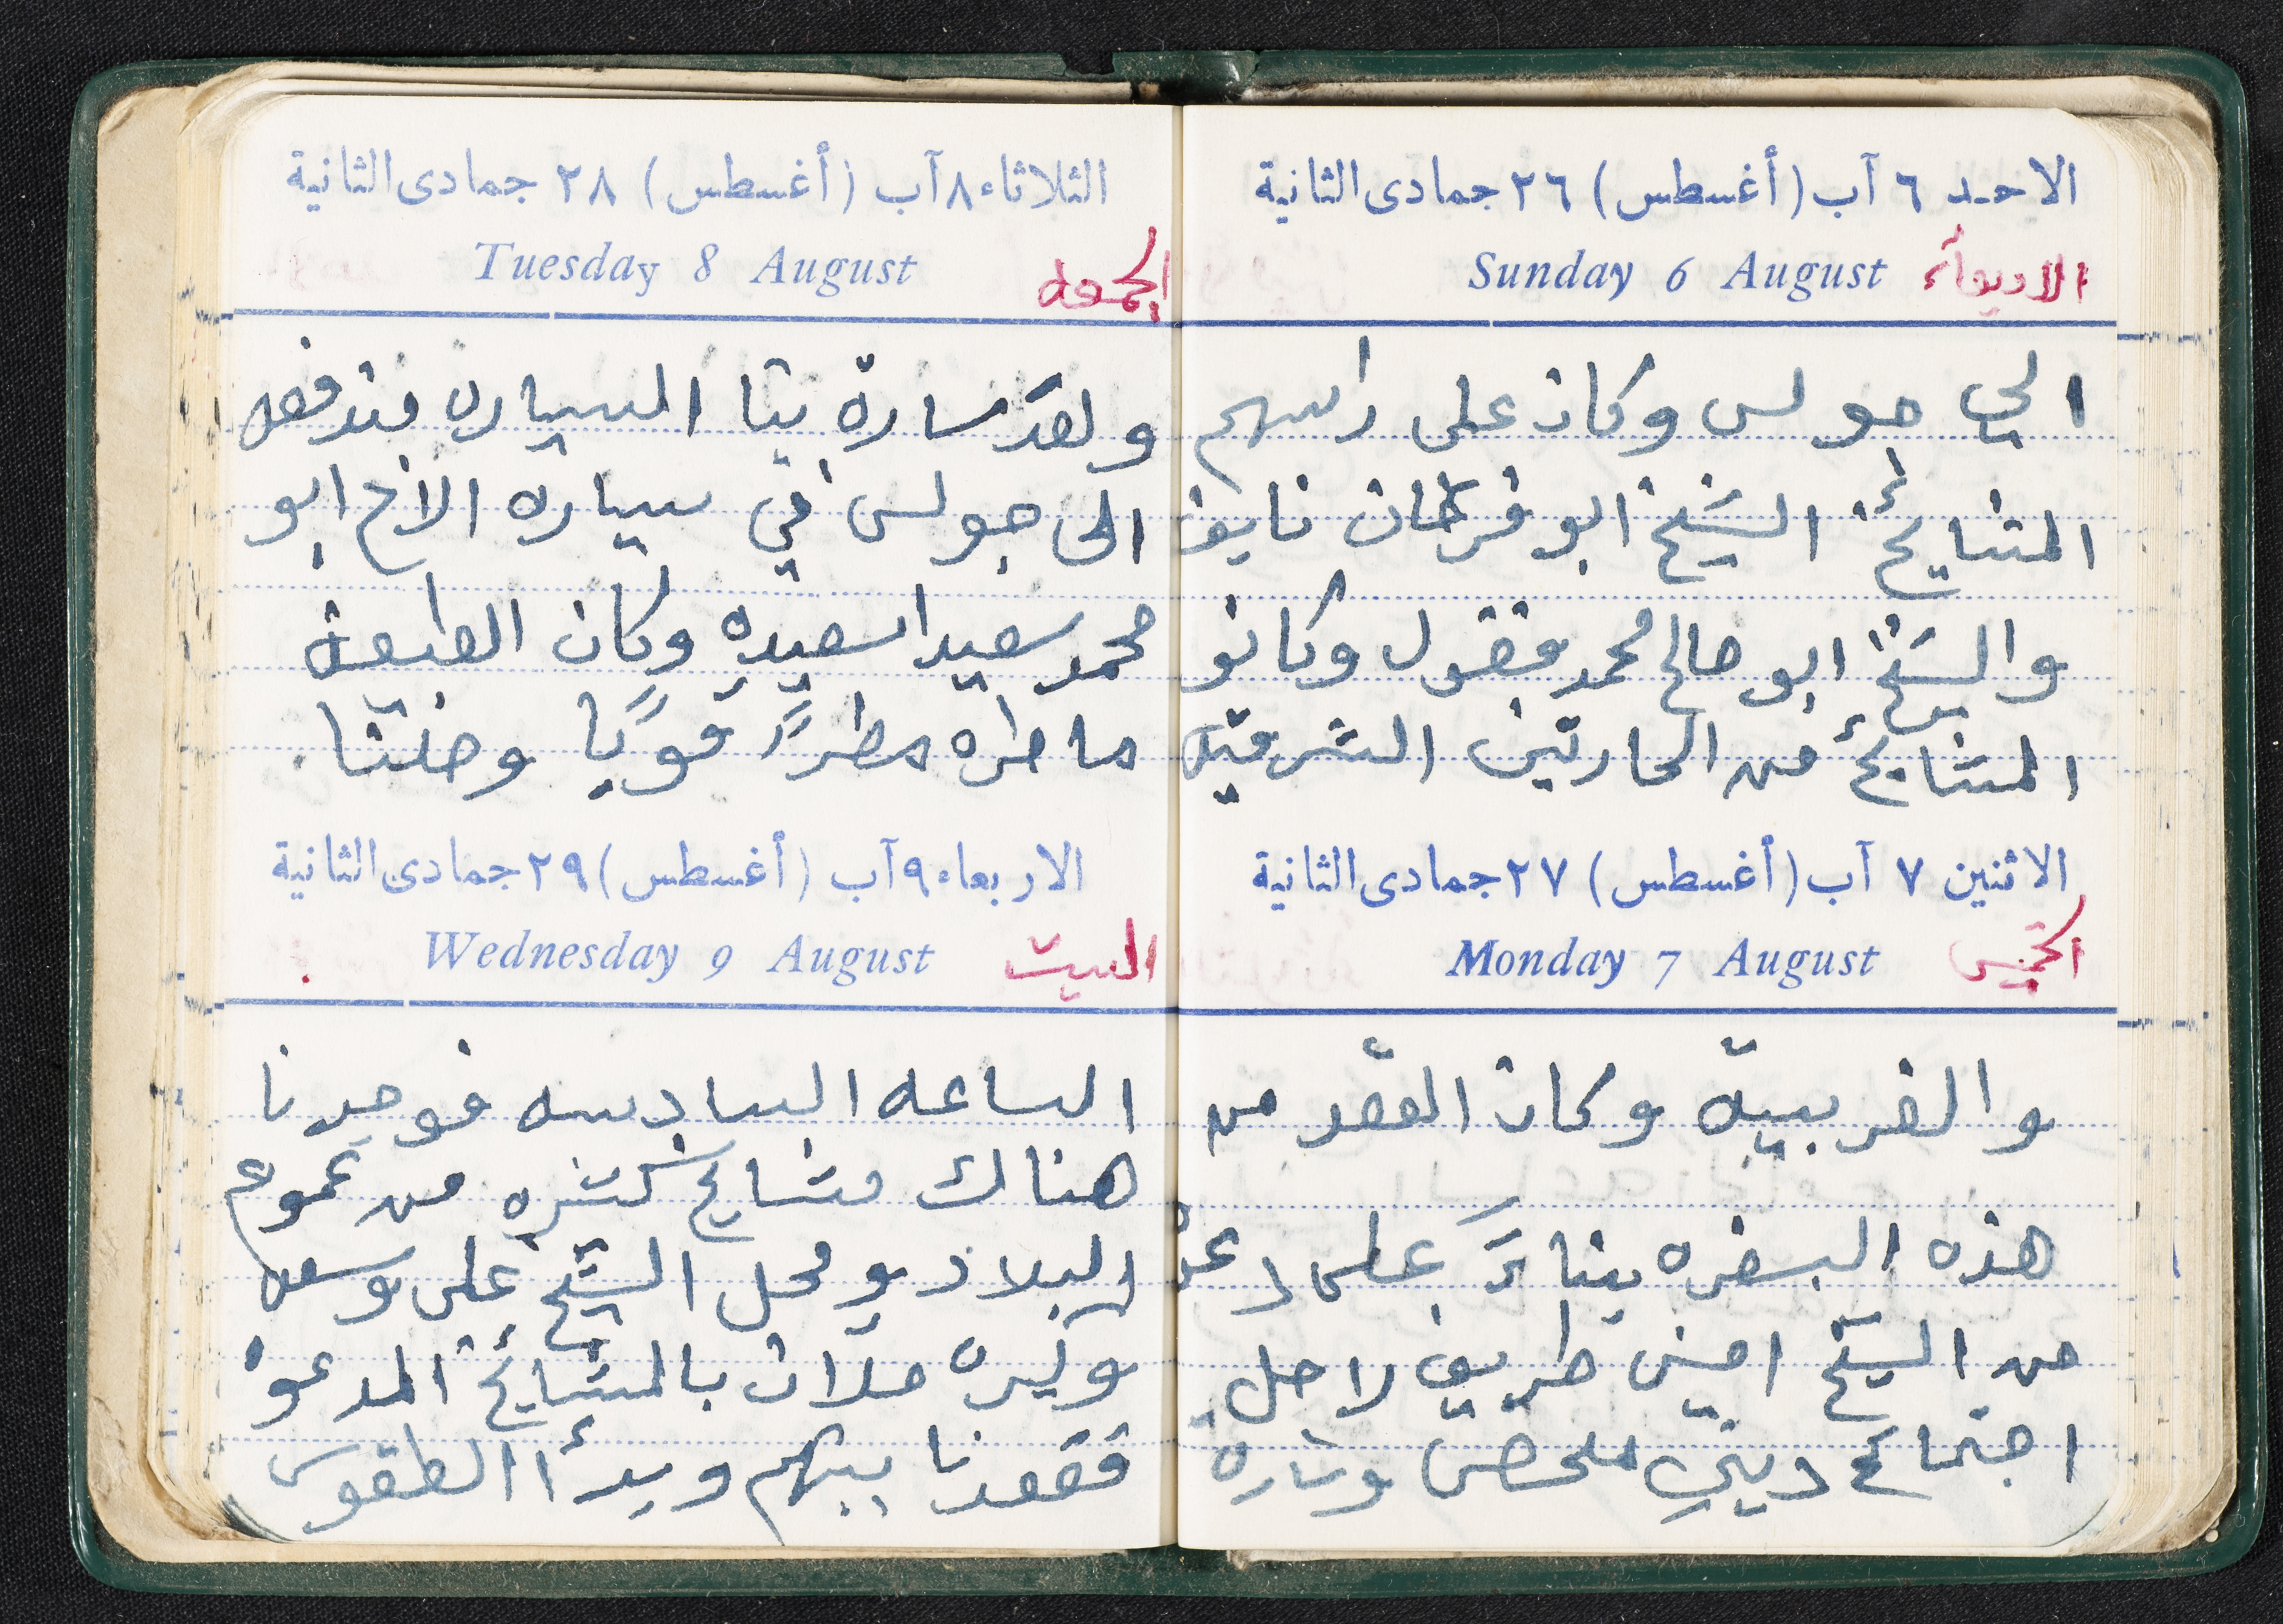 الاحد ٦ آب (أغسطس) ٢٦ جمادى الثانية
Sunday 6 August
الي جولس وكان على راسهم
المشايخ الشيخ ابو فرحان نايف
والشيخ ابو صالح محمد وكانو
المشايخ من الحارتين الشرقيّه
الاثنين ٧ آب (أغسطس) ٢٧ جمادى الثانية
Monday 7 August الخميس
والغربييّه وكان القصد من
هذه السفره بناءً على دعو
من الشيخ امين طريف لاجل
اجتماع دينيّ
الثلاثاء ٨ آب (أغسطس) ٢٨ جمادى الثانية
Tuesday 8 August الجمعه
ولقد سارة بنا السياره مندفعه
الى جولس في سياره الاخ ابو
محمد سعيد اسعيده وكان الطبيعه
ماطره مطراً قويًا وصلنا.
الاربعاء ٩ آب (أغسطس) ٢٩ جمادى الثانية
Wednesday 9 August السبت
الساعه السادسه فوجدنا
هناك مشايخ كثيره من عموم
البلاد ومحل الشيخ على وسعه
وكبره ملان بالمشايخ المدعوه
فقعدنا بينهم وبدأ الطقوس